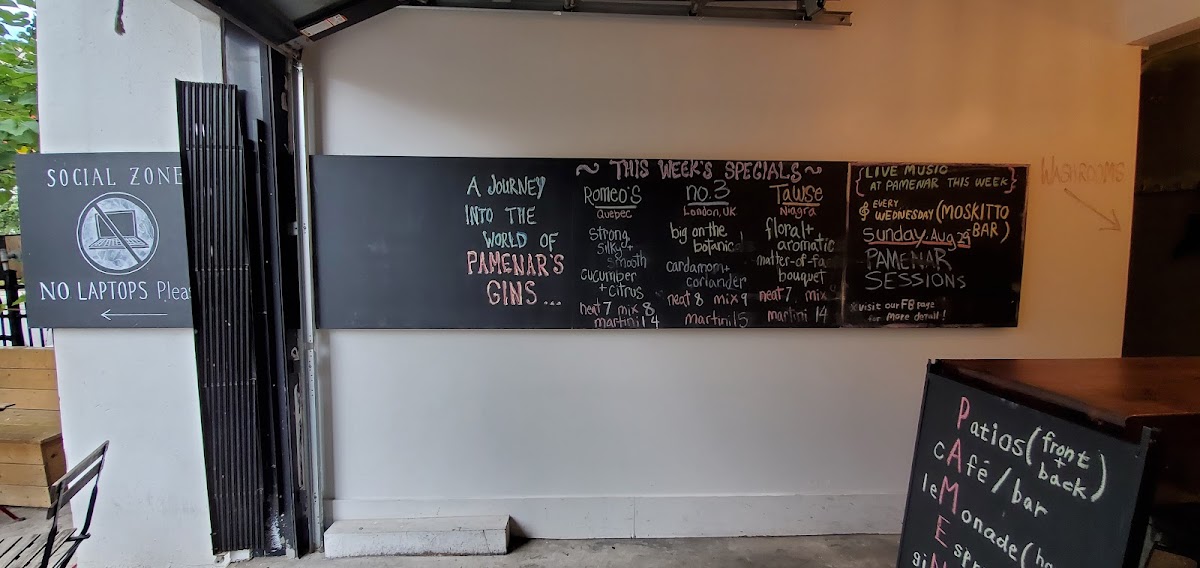 SOCIAL ZONE
NO LAPTOPS Pleas
A JOURNEY
INTO THE
WORLD OF
PAMENAR'S
GINS...
~ THIS WEEK'S SPECIALS ~
ROMEO'S
Quebec
strong
silky +
smooth
cucumber
+ citrus
neat 7 mix 8
martini 14
no.3
London, UK
big on the
botanic
cardamom +
coriander
neat 8 mix 9
martini 15
TAWSE
Niagra
floral +
aromatic
matter-of-fac
bouquet
neat 7 mix
martini 14
{LIVE MUSIC
AT PAMENAR THIS WEEK}
EVERY
WEDNESDAY (MOSKITTO
BAR)
Sunday, Aug 29
PAMENAR
SESSIONS
*visit our FB page
for more detail!
WASHROOMS
Patios (front
+
back)
cAfé/bar
leMonade (ho
Espr